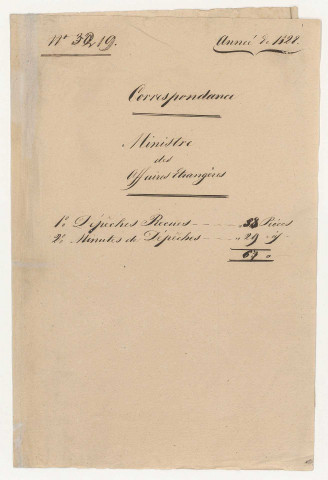 Nº 3819.
Année de 1828.
Correspondance
Ministre
des
Affaires Etrangères
1º Dépêches Recues 38 Pièces
2º Minutes de Dépêches „ 29 „
67 „